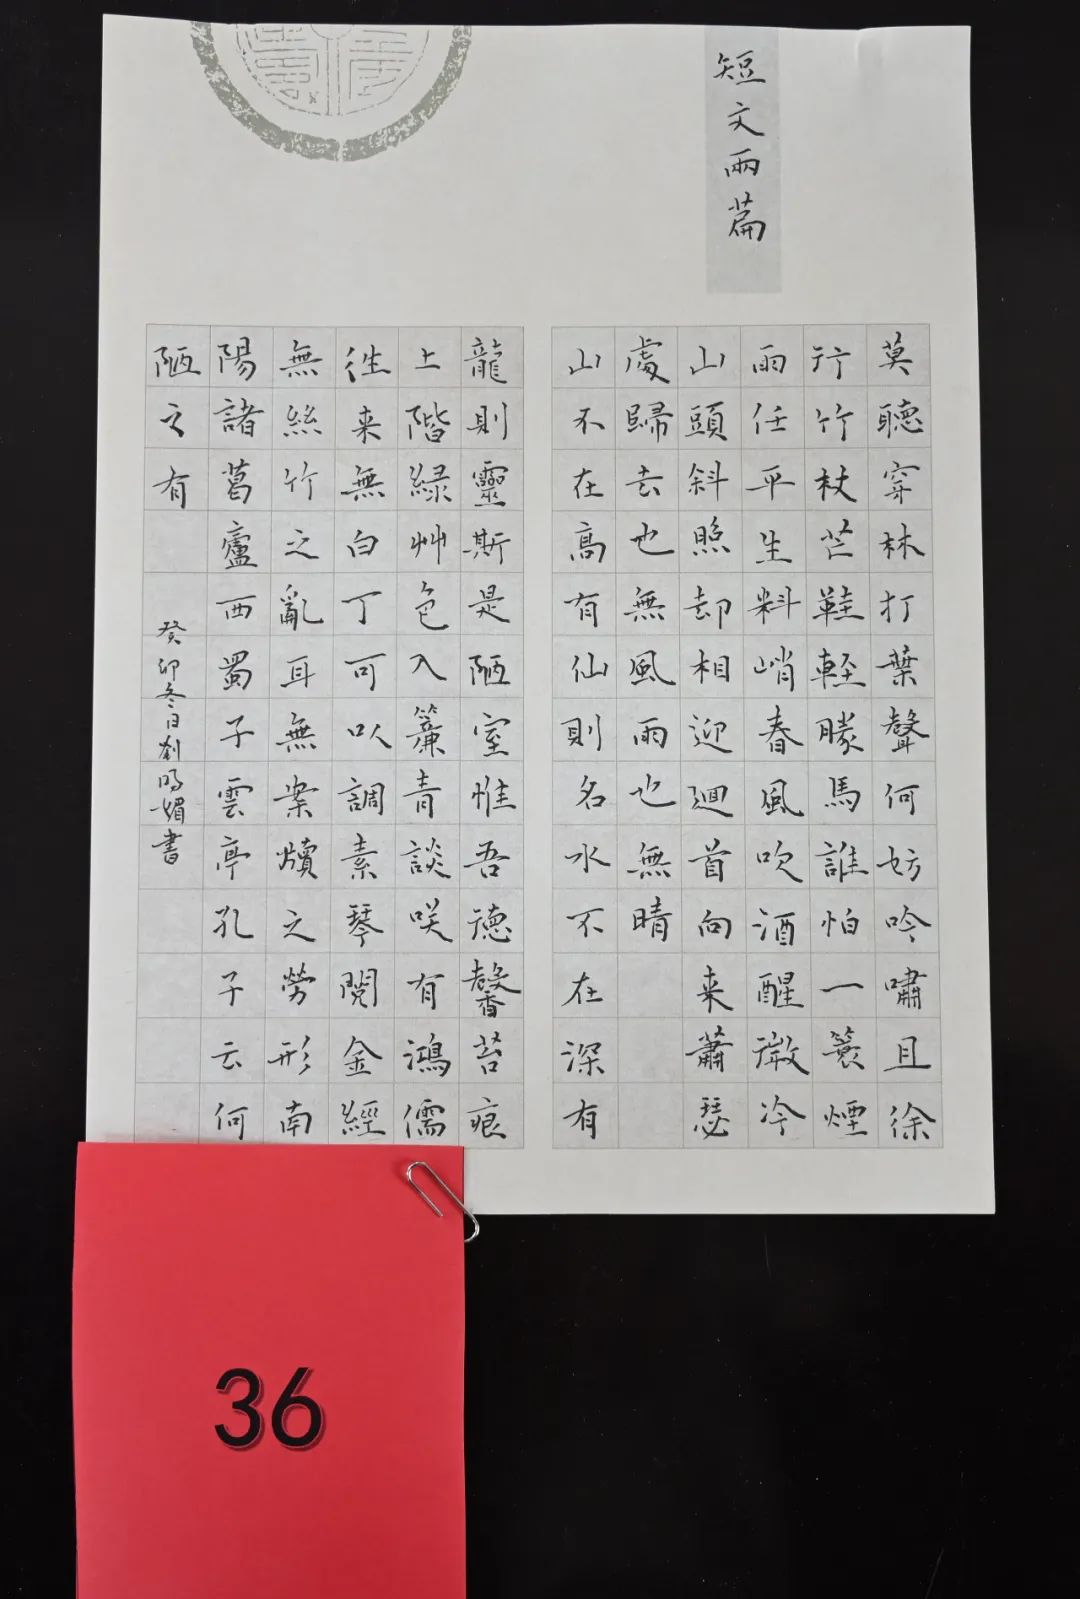 短文兩篇
莫聽穿林打葉聲何妨吟嘯且徐
行竹杖芒鞋輕勝馬誰怕一蓑煙
雨任平生料峭春風吹酒醒微冷
山頭斜照却相迎迴首向来蕭瑟
處歸去也無風雨也無晴
山不在高有仙則名水不在深有
龍則靈斯是陋室惟吾德馨苔痕
上階緑艸色入簾青談咲有鴻儒
徃来無白丁可以調素琴閱金經
無絲竹之亂耳無案牘之勞形南
陽諸葛廬西蜀子雲亭孔子云何
陋之有
癸卯冬日劉明媚書
36